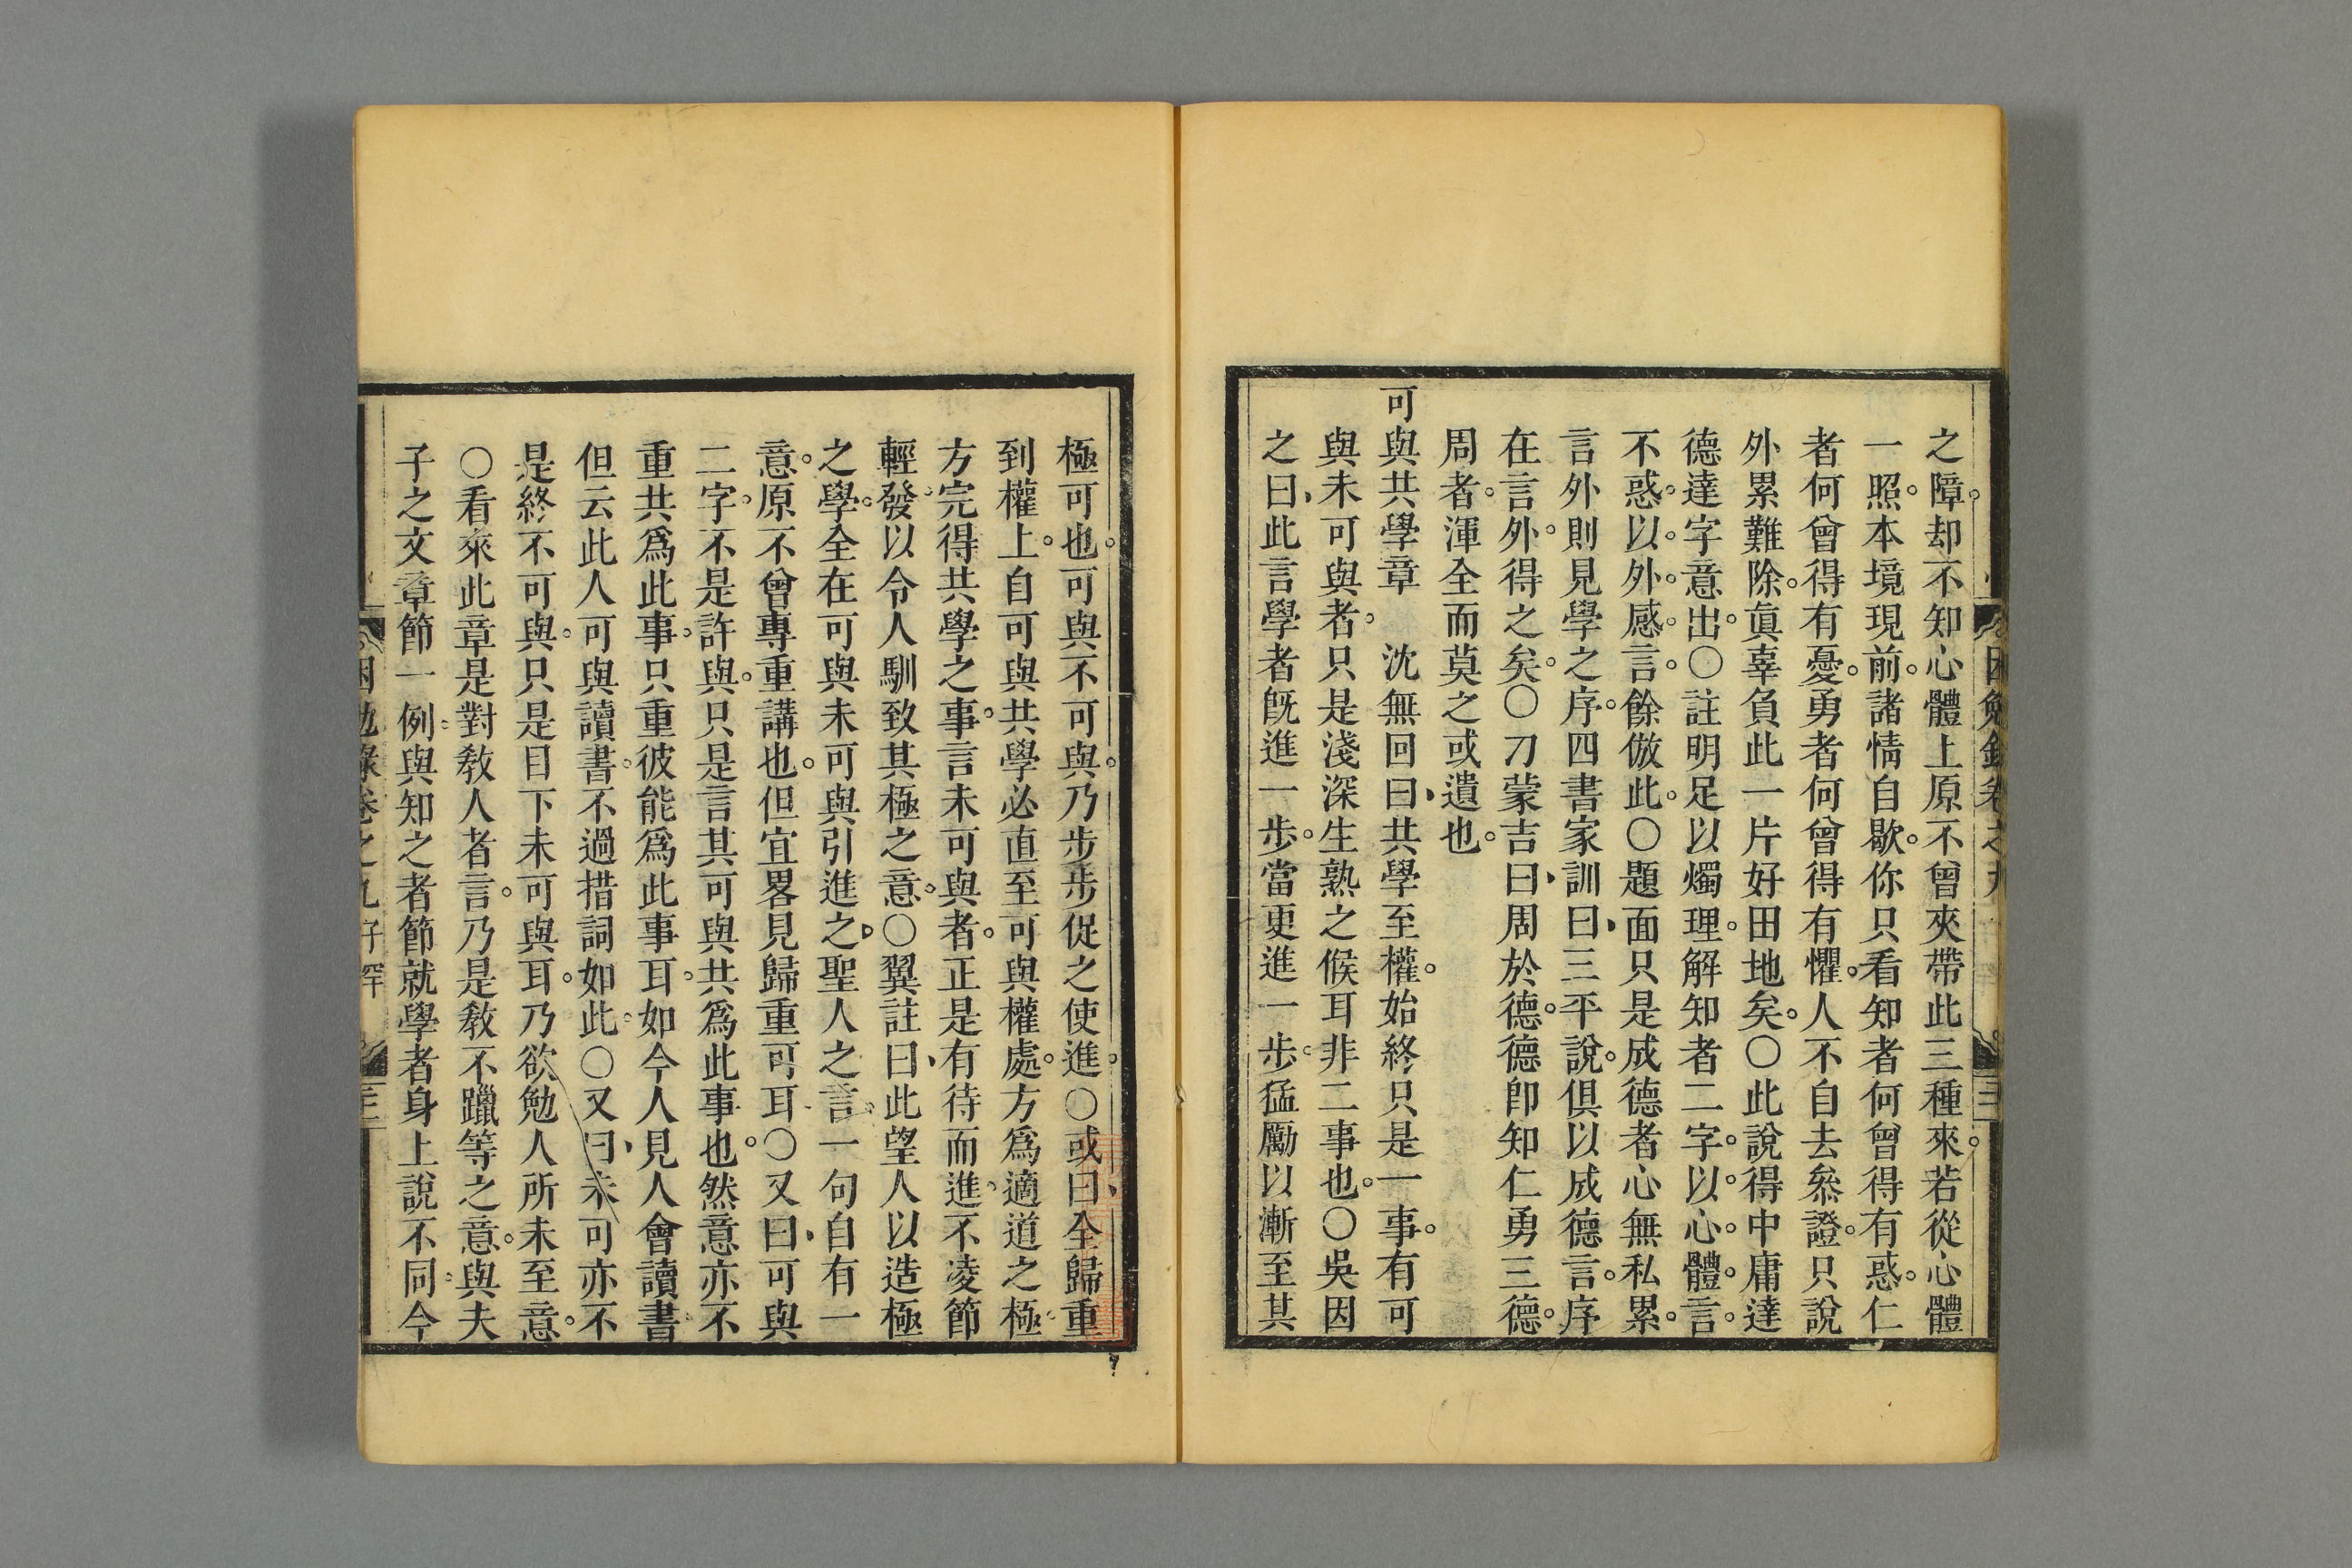 之障。却不知心體上原不曾夾帶此三種來。若從心體
一照。本境現前。諸情自歇。你只看知者何曾得有惑。仁
者何曾得有憂。勇者何曾得有懼。人不自去叅證。只說
外累難除。眞辜負此一片好田地矣。〇此說得中庸達
德達字意出。〇註明足以燭理。解知者二字。以心體言。
不惑。以外感言。餘倣此。〇題面只是成德者心無私累。
言外則見學之序。四書家訓曰、三平說。俱以成德言。序
在言外。得之矣。〇刀蒙吉曰、周於德。德德卽知仁勇三德。
周者。渾全而莫之或遺也。
可與共學章　沈無回曰、共學至權。始終只是一事。有可
與未可與者。只是淺深生熟之候耳非二事也。〇吳因
之曰、此言學者旣進一步。當更進一步。猛勵以漸至其
極可也。可與不可與。乃步步促之使進。〇或曰、全歸重
到權上。自可與共學必直至可與權處。方爲適道之極
方完得共學之事。言未可與者。正是有待而進。不凌節
輕發。以令人馴致其極之意。〇翼註曰、此望人以造極
之學。全在可與未可與引進之、聖人之言。一句自有一
意。原不曾專重講也。但宜畧見歸重可耳〇又曰、可與
二字。不是許與。只是言其可與共爲此事也。然意亦不
重共爲此事。只重彼能爲此事耳。如今人見人會讀書
但云此人可與讀書。不過措詞如此。〇又曰、未可亦不
是終不可與。只是目下未可與耳。乃欲勉人所未至意。
〇看來此章是對敎人者言。乃是敎不躐等之意。與夫
子之文章節一例。與知之者節就學者身上說不同。今
困勉錄卷之九子罕